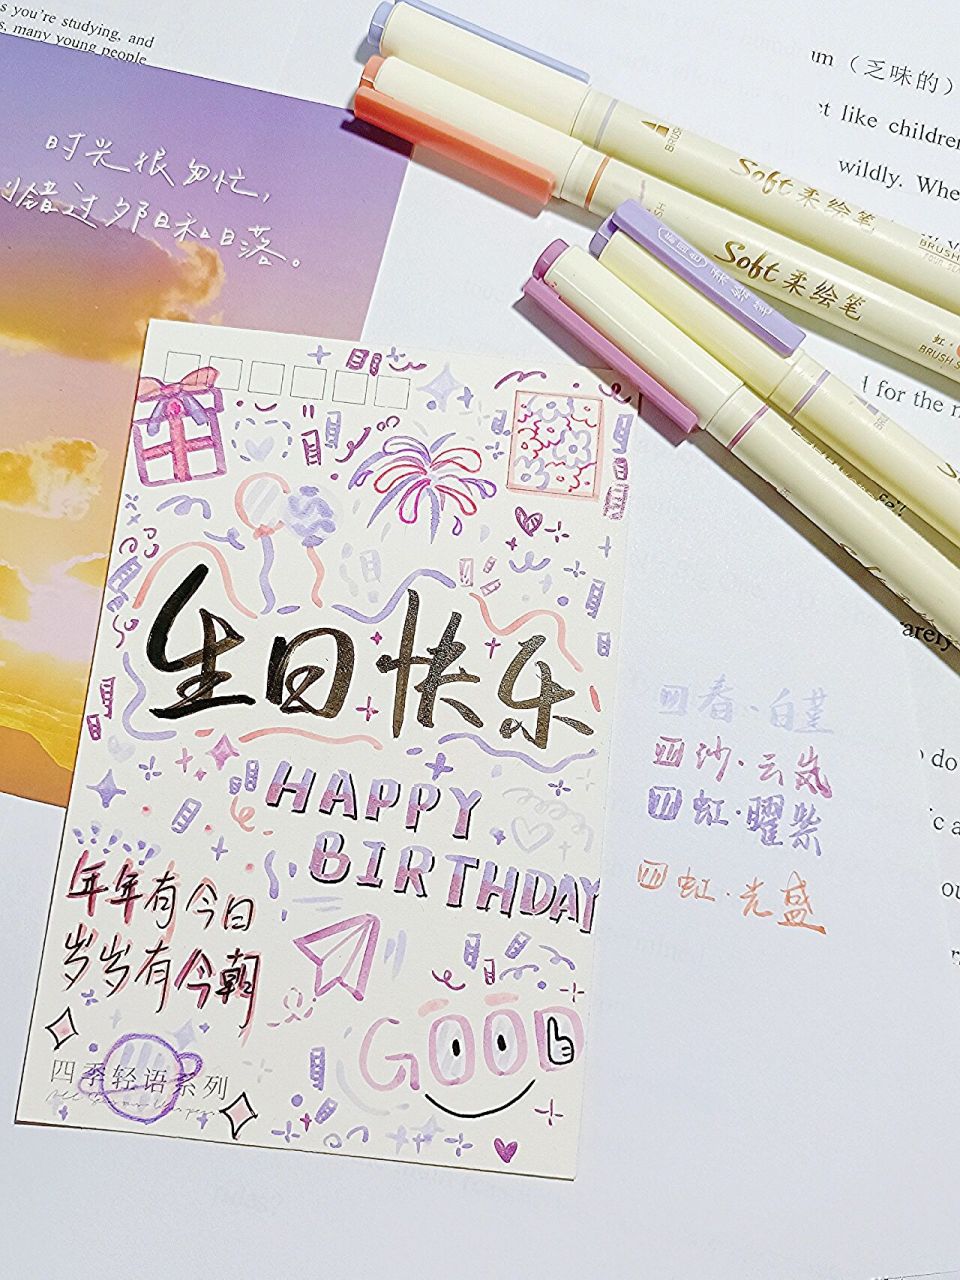 s you're studying, and
s, many young people
时光很匆忙，
别错过夕阳和日落。
um（乏味的）
t like children
wildly. Whe
d for the
arely
BRUSH
Soft 柔绘笔
BRUSH
Soft 柔绘笔
虹·
BRUSH
柔绘笔
生日快乐
HAPPY
BIRTHDAY
年年有今日
岁岁有今朝
GOOD
四季轻语系列
春·白堇
沙·云岚
虹·曜紫
虹·光盛